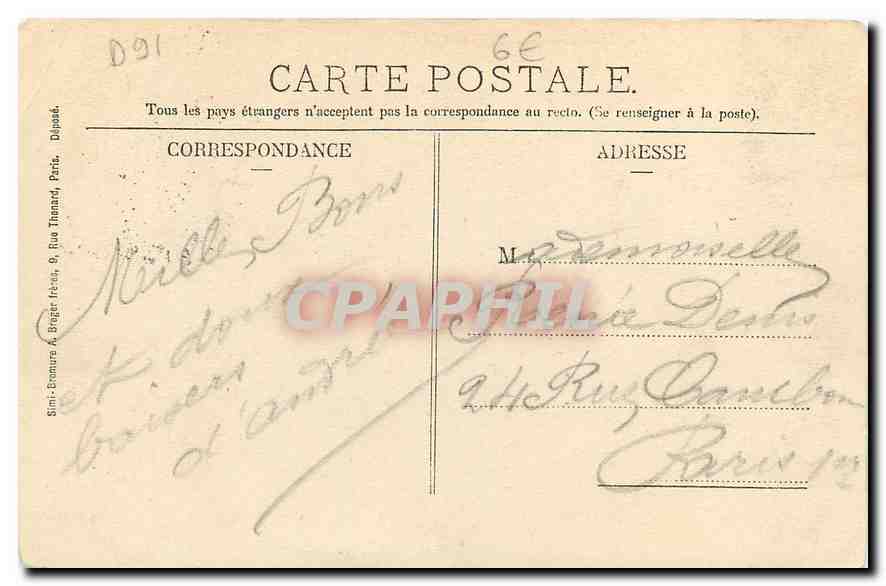 D91
6€
CARTE POSTALE.
Tous les pays étrangers n'acceptent pas la correspondance au recto. (Se renseigner à la poste).
CORRESPONDANCE
Mille Bons
et doux
baisers
d'andré
ADRESSE
Mademoiselle
Denis
24 Rue Cambon
Paris 1er
Simi-Bromure A. Breger frères, 9, Rue Thenard, Paris. Déposé.
CPAPHIL